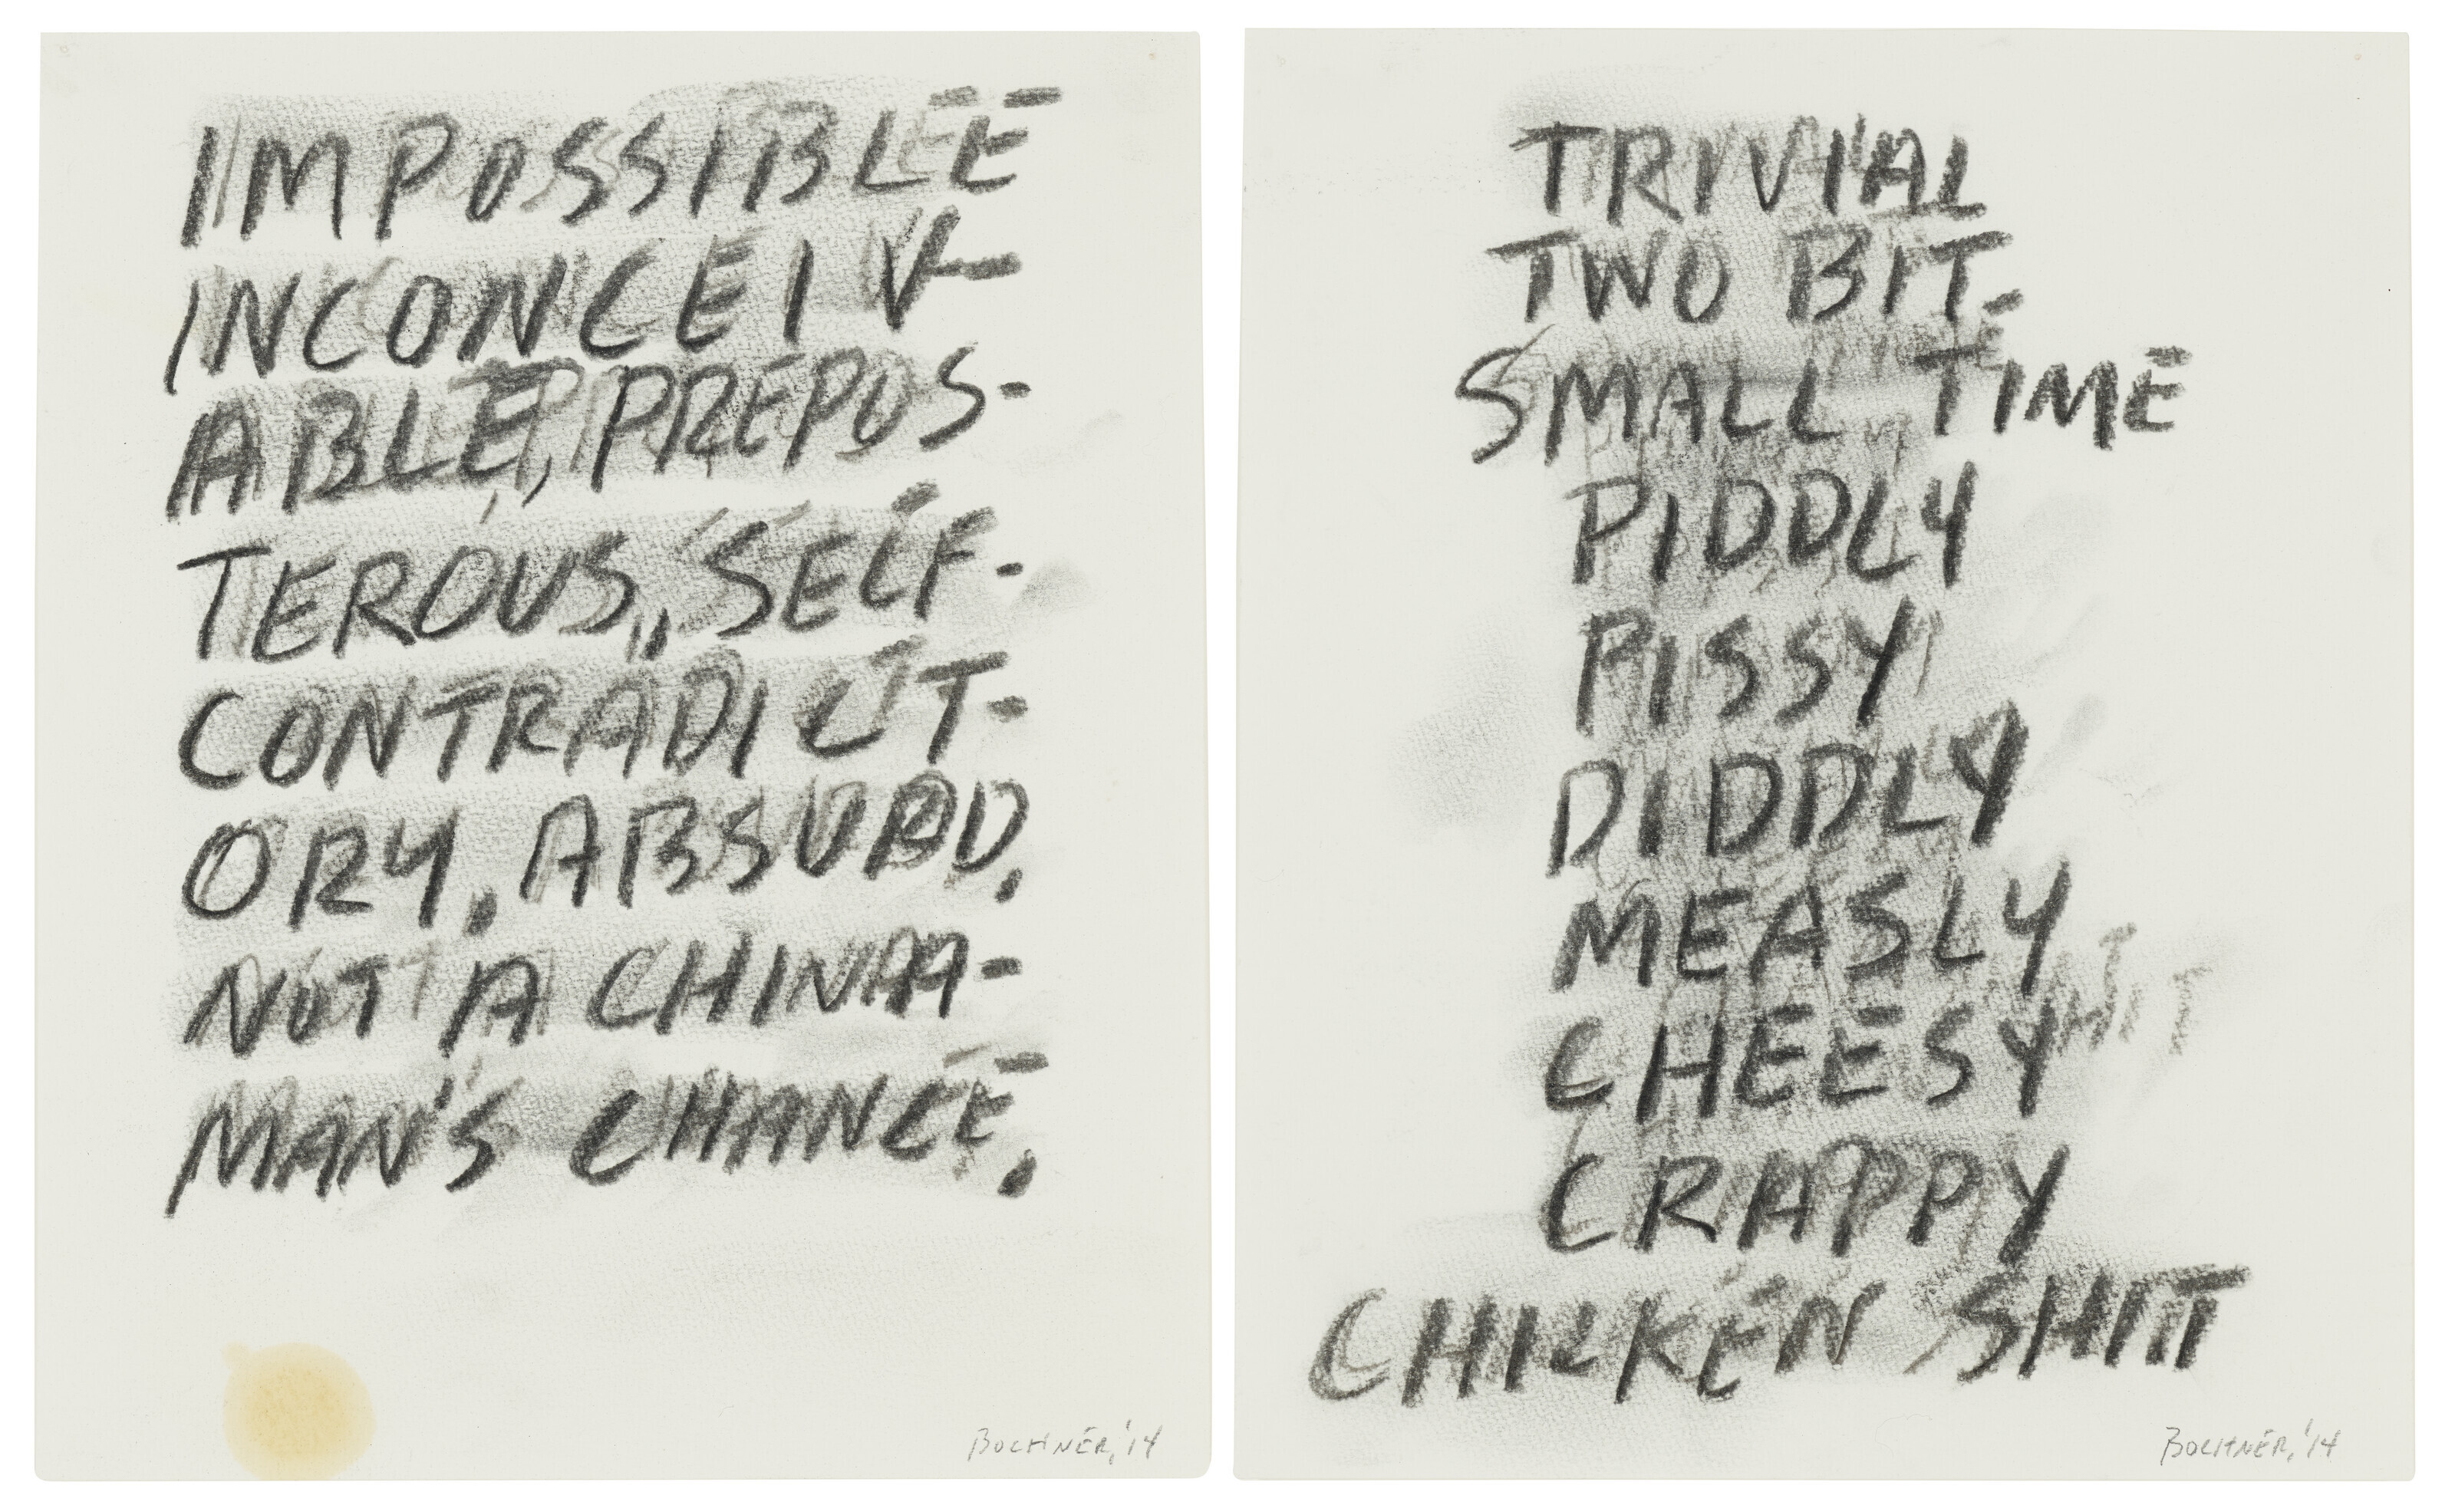 IMPOSSIBLE
INCONCEIV-
ABLE, PREPOS-
TEROUS, SELF-
CONTRADICT-
ORY, ABSURD,
NOT A CHINA-
MAN'S CHANCE.
BOCHNER, '14
TRIVIAL
TWO BIT
SMALL TIME
PIDDLY
PISSY
DIDDLY
MEASLY
CHEESY
CRAPPY
CHICKEN SHIT
BOCHNER, '14